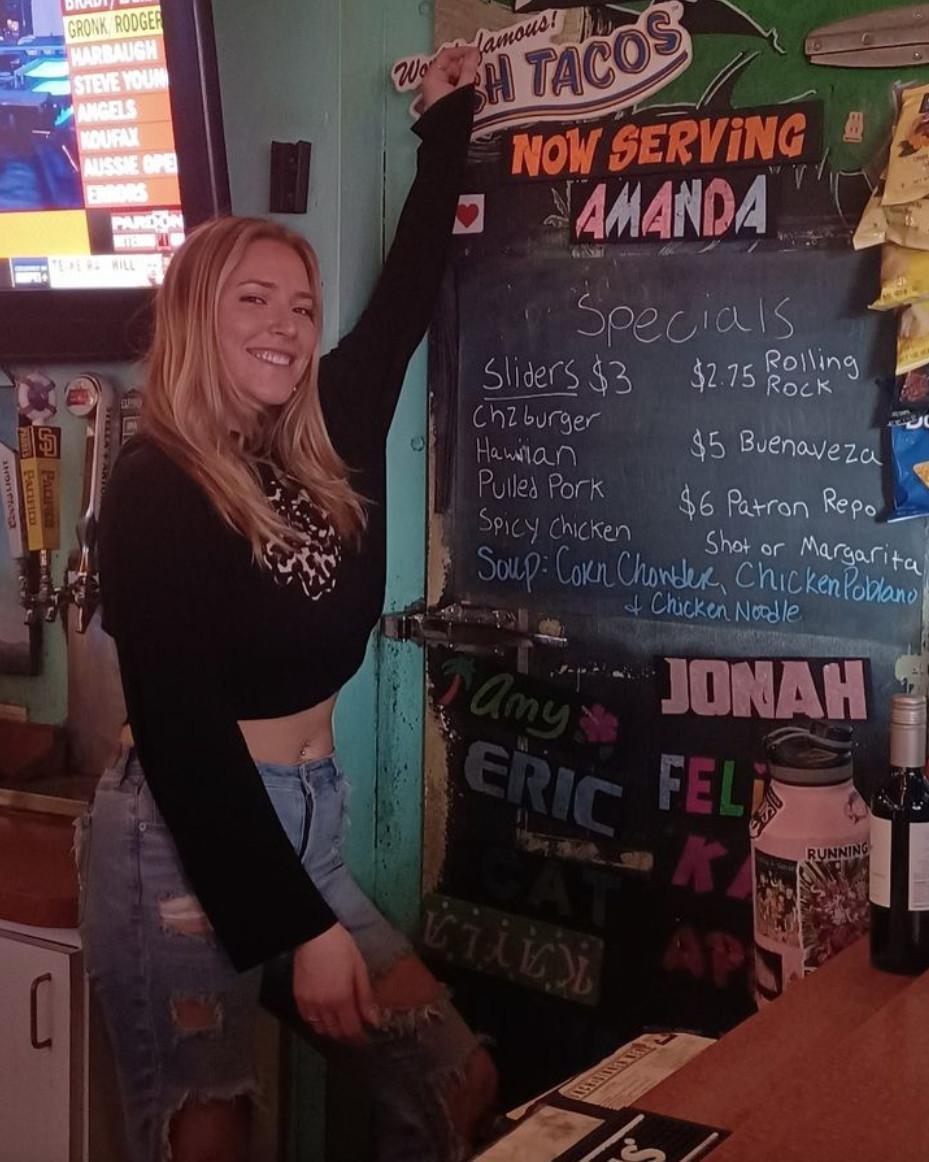 BRADY/
GRONK, RODGER
HARBAUGH
STEVE YOUN
ANGELS
KOUFAX
AUSSIE OPE
ERRORS
PARDON
famous!
SH TACOS
NOW SERVING
AMANDA
Specials
Sliders $3
Chzburger
Hawiian
Pulled Pork
Spicy Chicken
$2.75 Rolling
Rock
$5 Buenaveza
$6 Patron Repo
Shot or Margarita
Soup: Corn Chowder, Chicken Poblano
& Chicken Noodle
Amy
JONAH
ERIC
FELi
CAT
KA
KAYLA
AP
RUNNING
PACIFICO
SD